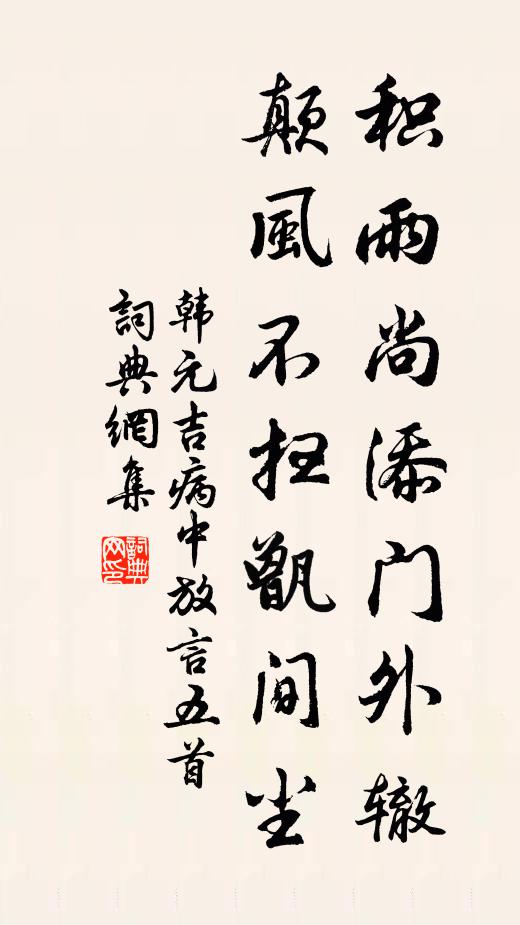 积雨尚添门外辙
颠風不扫甑间尘
韩元吉病中放言五首
詞典網集
詞典网印